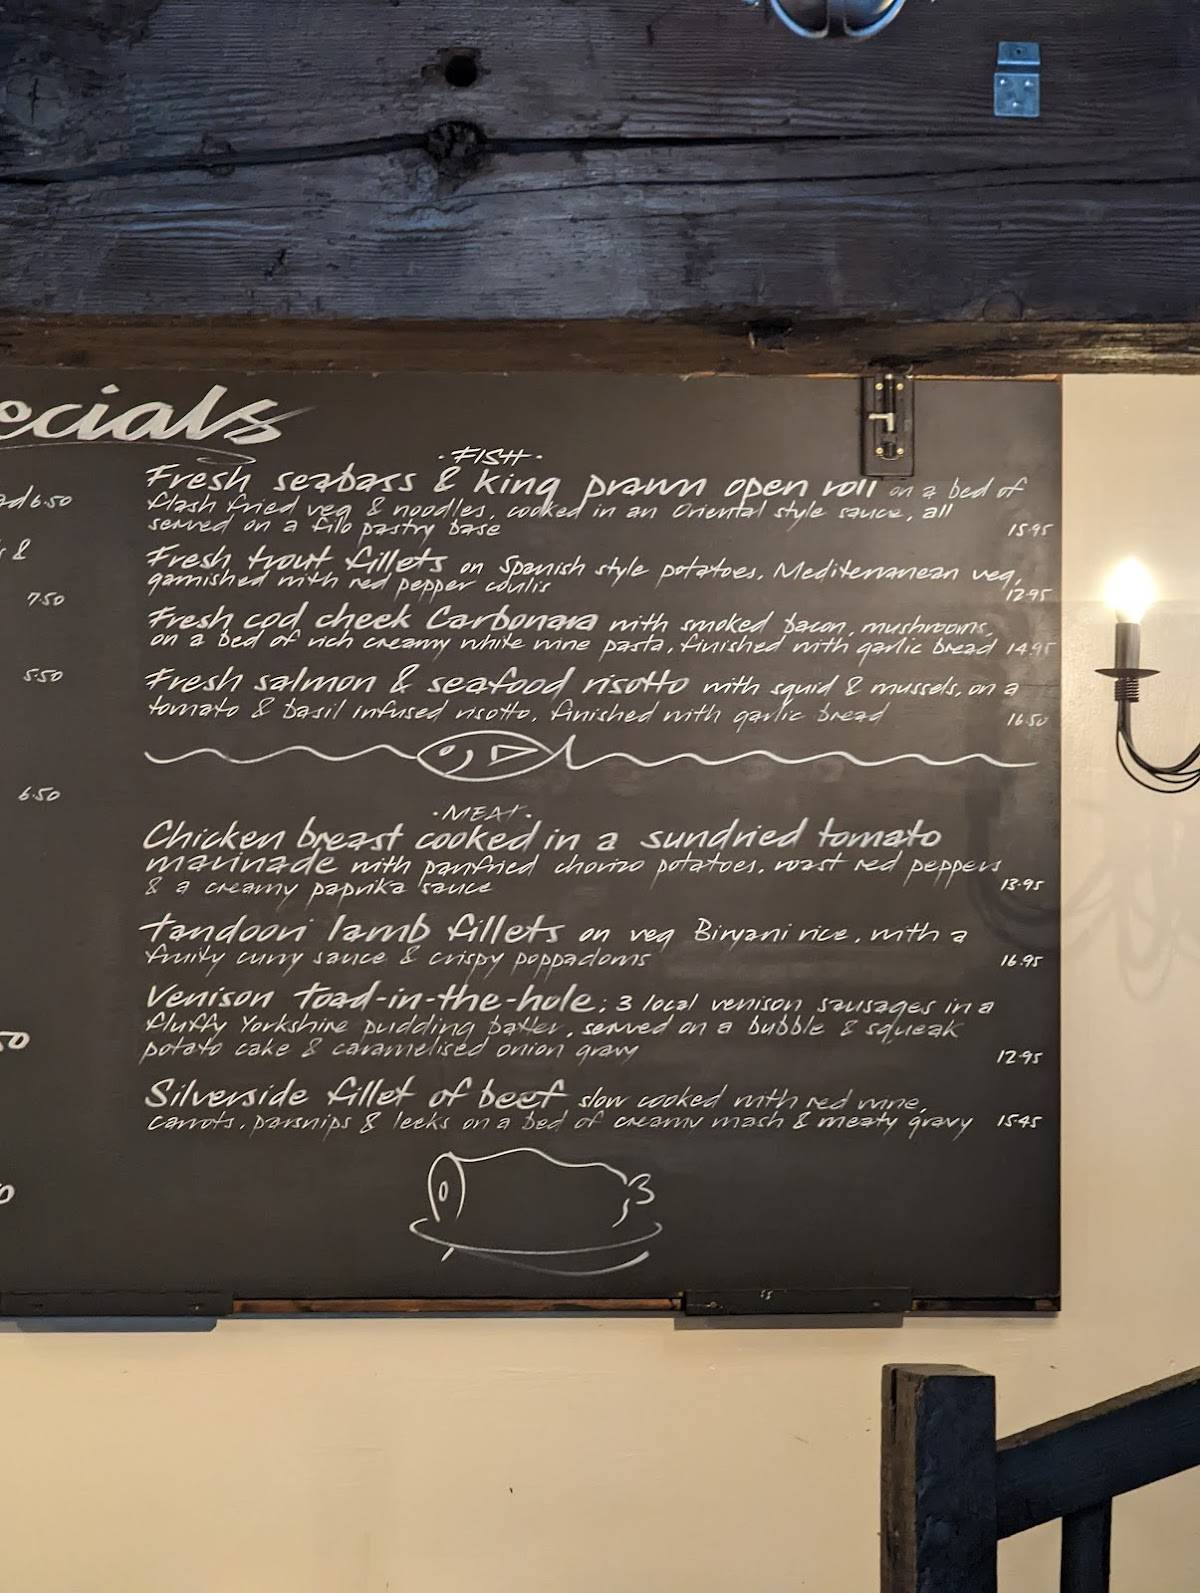 ecials
ad 6.50
&
7.50
5.50
6.50
50
0
· FISH ·
Fresh seabass & king prawn open roll on a bed of
flash fried veg & noodles, cooked in an Oriental style sauce, all
served on a filo pastry base 15.95
Fresh trout fillets on Spanish style potatoes, Mediterranean veg,
garnished with red pepper coulis 12.95
Fresh cod cheek Carbonara with smoked bacon, mushrooms,
on a bed of rich creamy white wine pasta, finished with garlic bread 14.95
Fresh salmon & seafood risotto with squid & mussels, on a
tomato & basil infused risotto, finished with garlic bread 16.50
· MEAT ·
Chicken breast cooked in a sundried tomato
marinade with panfried chorizo potatoes, roast red peppers
& a creamy paprika sauce 13.95
Tandoori lamb fillets on veg Biryani rice, with a
fruity curry sauce & crispy poppadoms 16.95
Venison toad-in-the-hole; 3 local venison sausages in a
fluffy Yorkshire pudding batter, served on a bubble & squeak
potato cake & caramelised onion gravy 12.95
Silverside fillet of beef slow cooked with red wine,
carrots, parsnips & leeks on a bed of creamy mash & meaty gravy 15.45